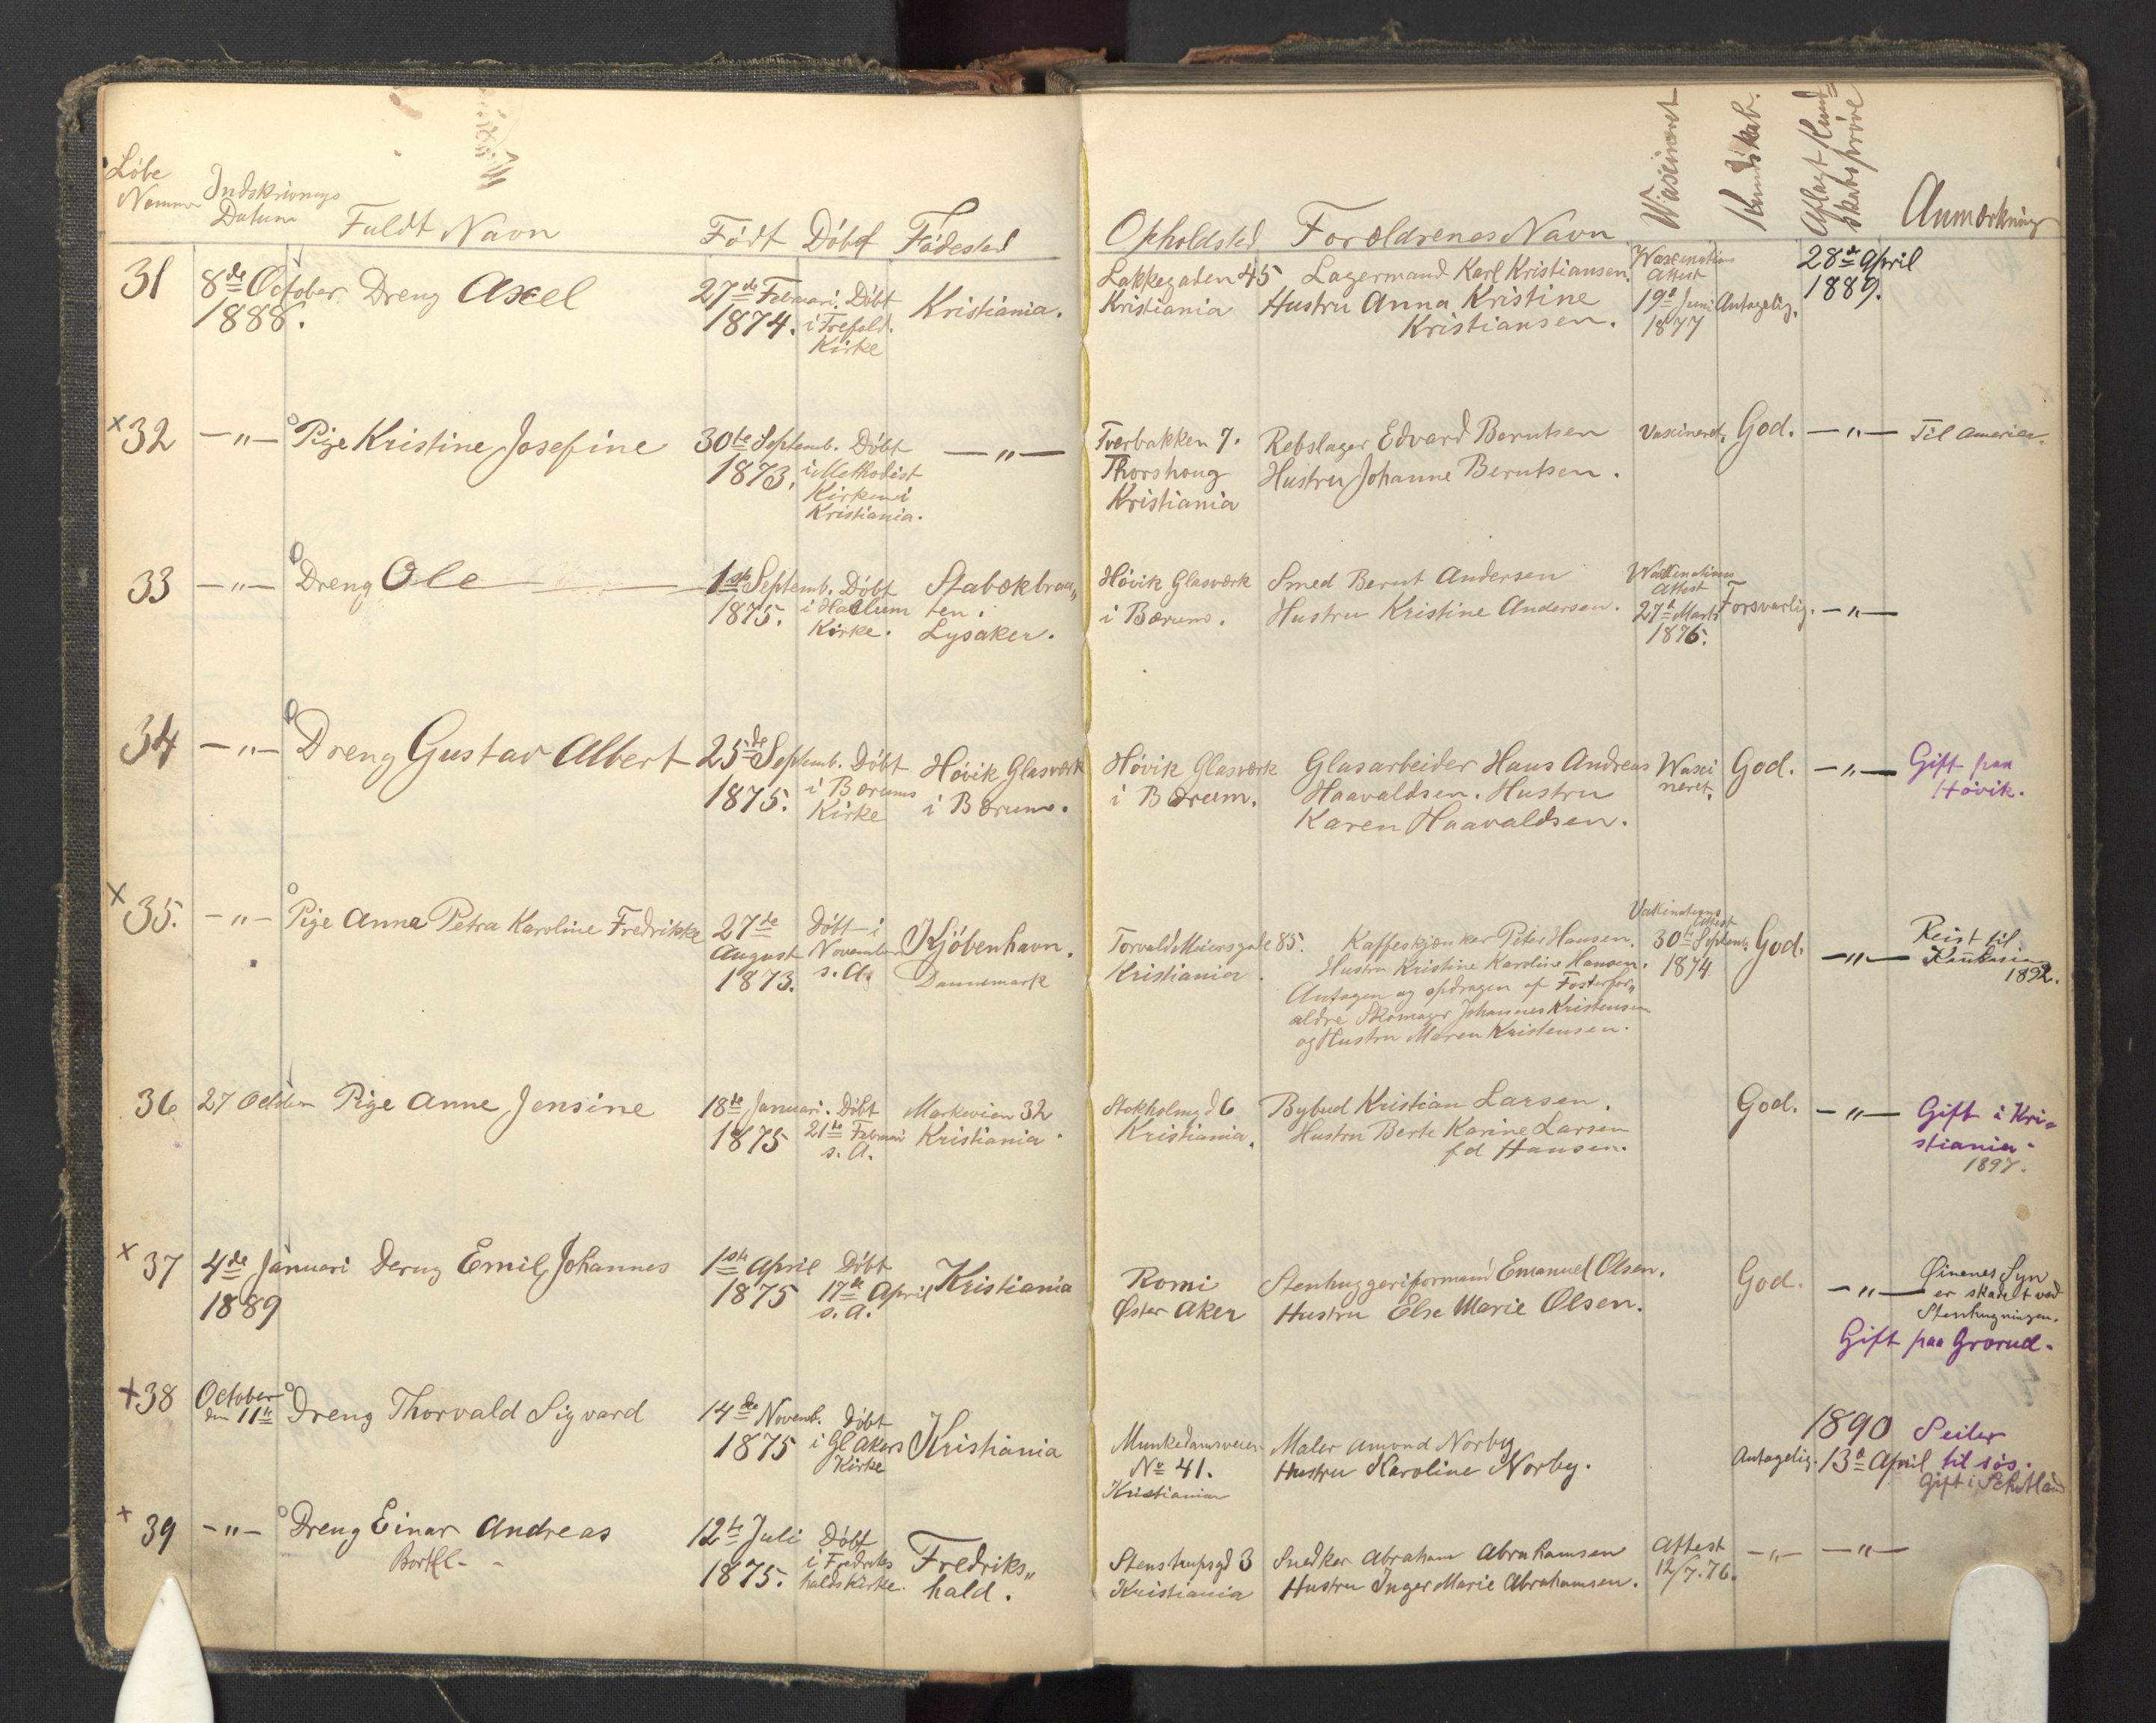 Löbe
Nommer
Indskrivnings
Datum
Fuldt Navn
Födt
Döbt
Födested
Opholdsted
Foræeldrenes Navn
Vascineret
Kundskab.
Aflagt Kund=
skabsprøve
Anmærkning
31
8de October
1888.
Dreng Axel
27de Februari.
1874.
Döbt
i Trefold.
Kirke
Kristiania.
Lakkegaden 45
Kristiania
Lagermand Karl Kristiansen.
Hustru Anna Kristine
Kristiansen.
Attest
19de Juni
1877
Antagelig.
28de April
1889.
×32
—"—
Pige Kristine Josefine
30te Septemb.
1873,
Döbt
i Methodist
Kirken i
Kristiania.
—"—
Tverbakken 7.
Thorshoug
Kristiania
Rebslager Edvard Berntsen
Hustru Johanne Berntsen.
Vascineret.
God.
—"—
Til America.
33
—"—
Dreng Ole
1ste Septemb.
1875.
Döbt
i Haslum
Kirke.
Stabækbraa„
ten.
Lysaker.
Hövik Glasværk
i Bærum.
Smed Bernt Andersen
Hustru Kristine Andersen.
Attest
27de Marts
1876.
Forsvarlig.
—"—
34
—"—
Dreng Gustav Albert
25de Septemb.
1875.
Döbt
i Bærums
Kirke
Hövik Glasværk
i Bærum.
Hövik Glasværk
i Bærum.
Glasarbeider Hans Andreas
Haavaldsen. Hustru
Karen Haavaldsen.
Wasci
neret.
God.
—"—
Gift paa
Hövik.
×35.
—"—
Pige Anna Petra Karoline Fredrikke
27de
August
1873.
Döbt i
November
s. A.
Kjöbenhavn.
Dannemark
Torvald Meiersgade 85.
Kristiania.
Kaffeskjænker Peter Hansen.
Hustru Kristine Karoline Hansen.
Antagen og opdragen af Fosterfor„
ældre Skomager Johannes Kristensen
og Hustru Maren Kristensen.
Vaksinations
Attest
30te Septemb.
1874
God.
—"—
Reist til
Kaukasien
1892.
36
27 October
Pige Anne Jensine
18de Januari.
1875
Döbt
21de Februari
s. A.
Markveien 32
Kristiania.
Stokholmgd 6
Kristiania.
Bybud Kristian Larsen.
Hustru Berte Karine Larsen
fd Hansen.
God.
—"—
Gift i Kri=
stiania.
1897.
×37
4de Januari
1889
Dreng Emil Johannes
1ste April
1875
Döbt
17de April
s. A.
Kristiania
Romi
Øster Aker
Stenhuggeriformand Emanuel Olsen.
Hustru Else Marie Olsen.
God.
—"—
Øinenes Syn
er skadet ved
Stenhugningen.
Gift paa Grorud.
+38
October
den 11te
Dreng Thorvald Sigvard
14de Novemb.
1875
Döbt
i Gl Akers
Kirke
Kristiania
Munkedamsveien
No 41.
Kristiania
Maler Amund Norby
Hustru Karoline Norby.
Antagelig.
1890
13de April
Seiler
til sös.
Gift i Skotland
+39
—"—
Dreng Einar Andreas
12te Juli
1875.
Döbt
i Fredriks
halds Kirke.
Fredriks„
hald.
Stenstrupsgd 3
Kristiania
Snedker Abraham Abrahamsen
Hustru Inger Marie Abrahamsen.
Attest
12/7. 76.
—"—
—"—